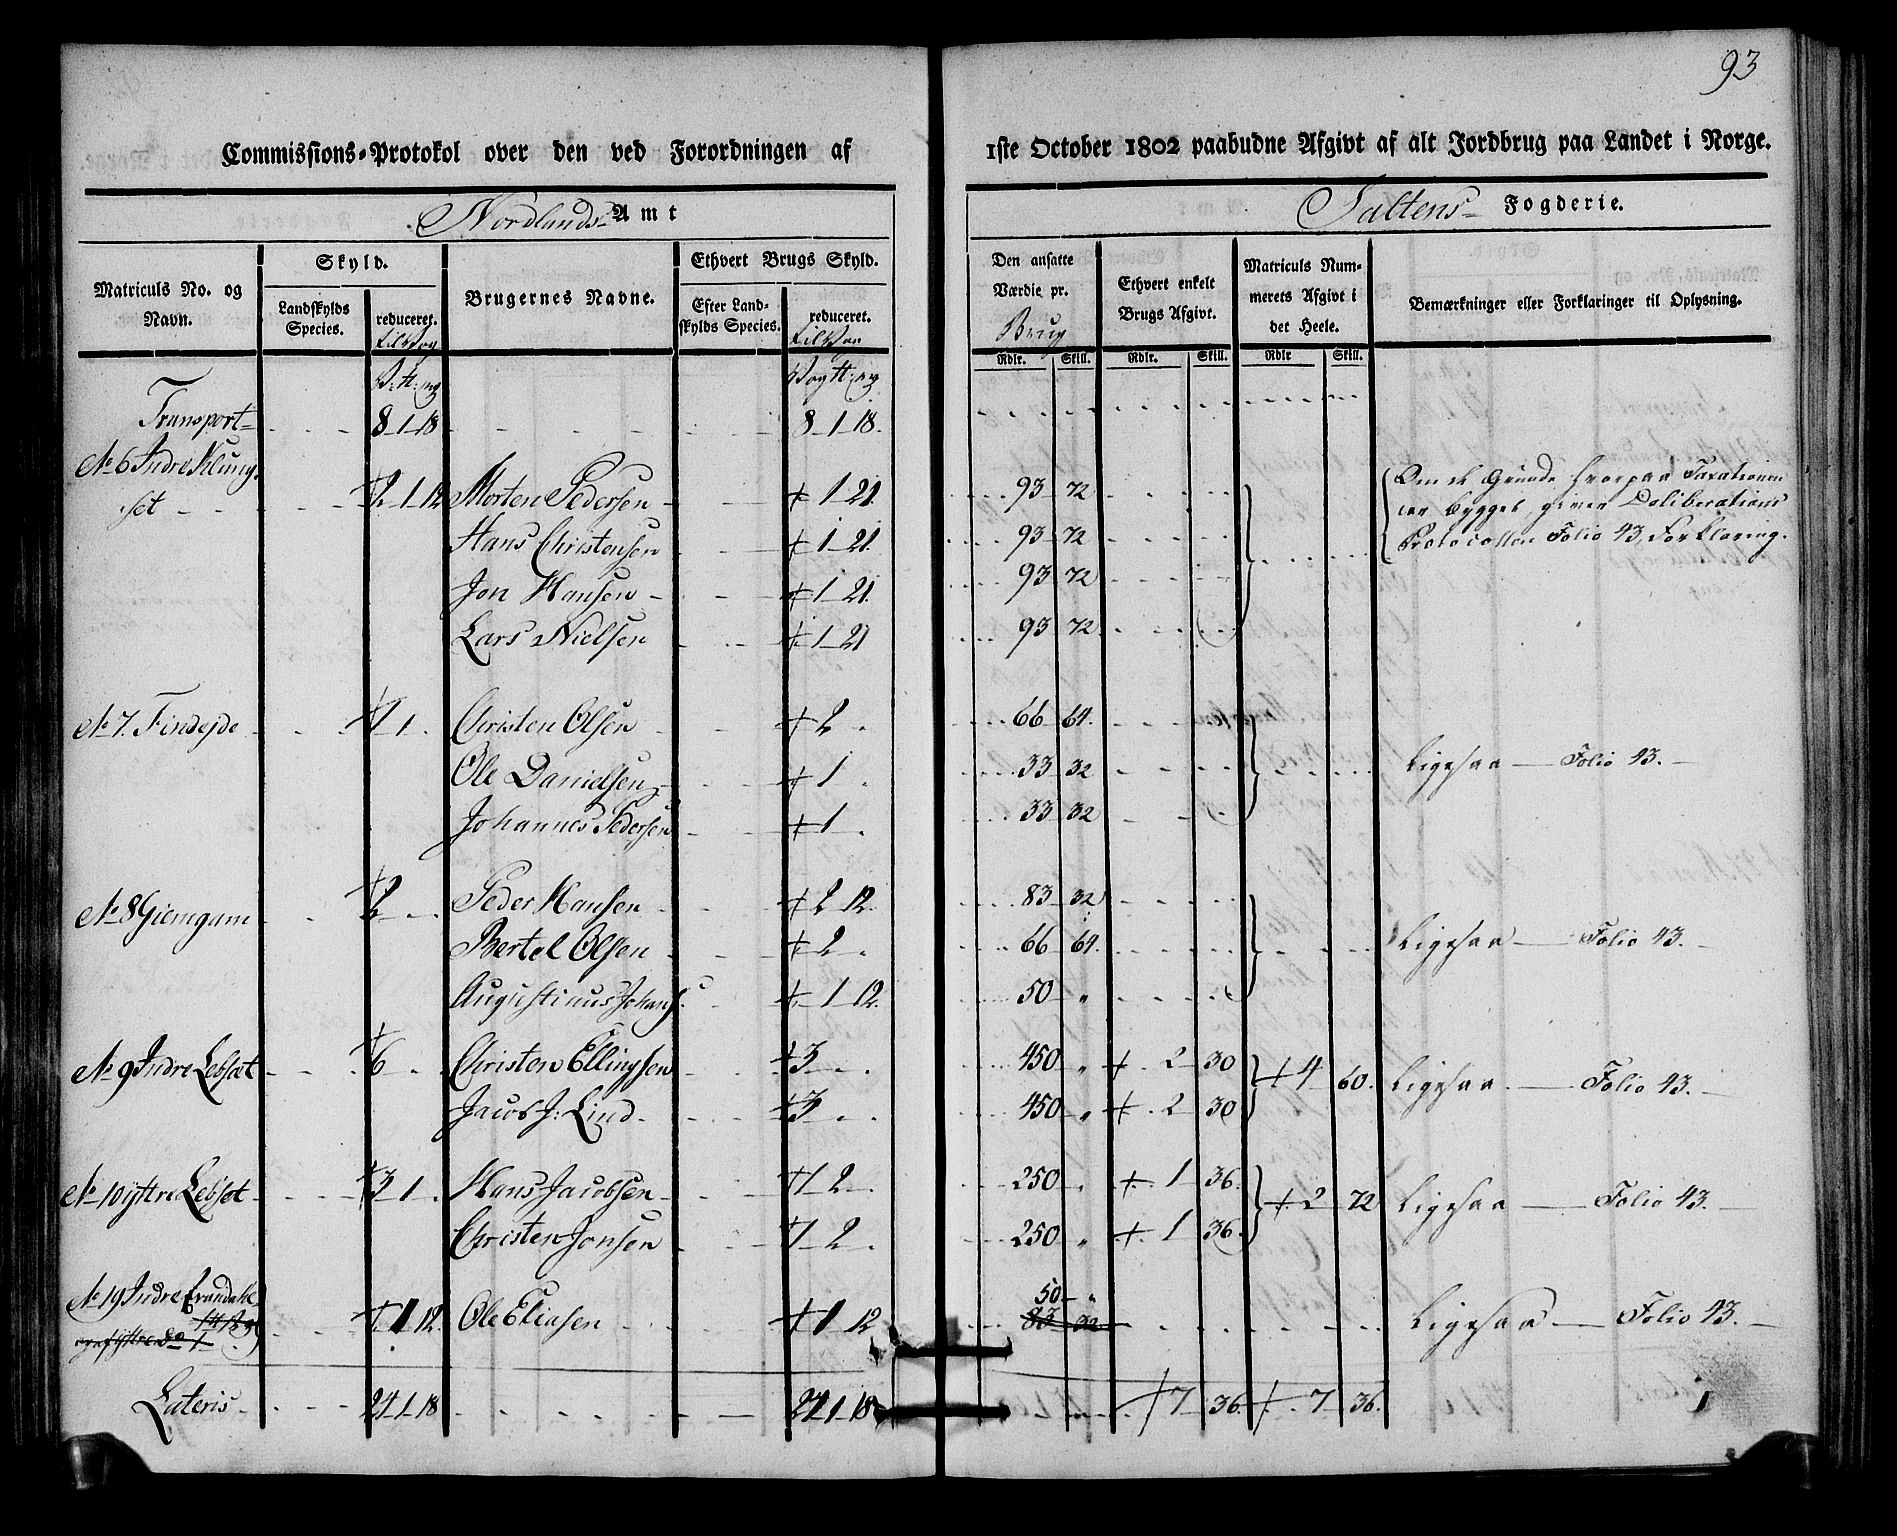 93
Commissions-Protokol over den ved Forordningen af 1ste October 1802 paabudne Afgivt af alt Jordbrug paa Landet i Norge.
Nordlands Amt
Saltens Fogderie.
Matriculs No. og Navn.
Skyld.
Landskylds Species.
reduceret. til Vog
Brugernes Navne.
Ethvert Brugs Skyld.
Efter Landskylds Species.
reduceret. til Vog
Den ansatte Værdie pr. Brug
Ethvert enkelt Brugs Afgivt.
Matriculs Nummerets Afgivt i det Heele.
Bemærkninger eller Forklaringer til Oplysning.
Rdlr. Skill. Rdlr. Skill. Rdlr Skill.
Transport 8 1 18 8 1 18.
No 6 Indre Klungset 2 1 12 Morten Pedersen 1 21 93 72 Om de Grunde hvorpaa Taxationen
er bygget, giver Deliberations
Protocollen Folio 43, Forklaring.
Hans Christensen 1 21. 93 72
Jon Hansen 1 21. 93 72
Lars Nielsen 1 21 93 72
No 7. Finsejde 1 1. Christen Olsen 2 66 64. Ligesaa Folio 43.
Ole Danielsen 1 33 32
Johannes Pedersen 1 33 32
No 8 Giemgam 2 Peder Hansen 2 12. 83 32 Ligesaa Folio 43.
Bertel Olsen 2 66 64.
Augustinus Johans: 1 12. 50 "
No 9 Indre Lebsæt 6 Christen Ellingsen 3 450 " 2 30 4 60. Ligesaa Folio 43.
Jacob J: Lind 3 450 " 2 30
No 10 yttre Lebset 3 1. Hans Jacobsen 1 2 250 " 1 36. 2 72 Ligesaa Folio 43.
Christen Jonsen 1 2 250 " 1 36.
50 "
No 19 Indre 1 12. Ole Eliasen 1 12 83 32 Ligesaa Folio 43.
Lateris 24 1 18 24 1 18 7 36. 7 36.